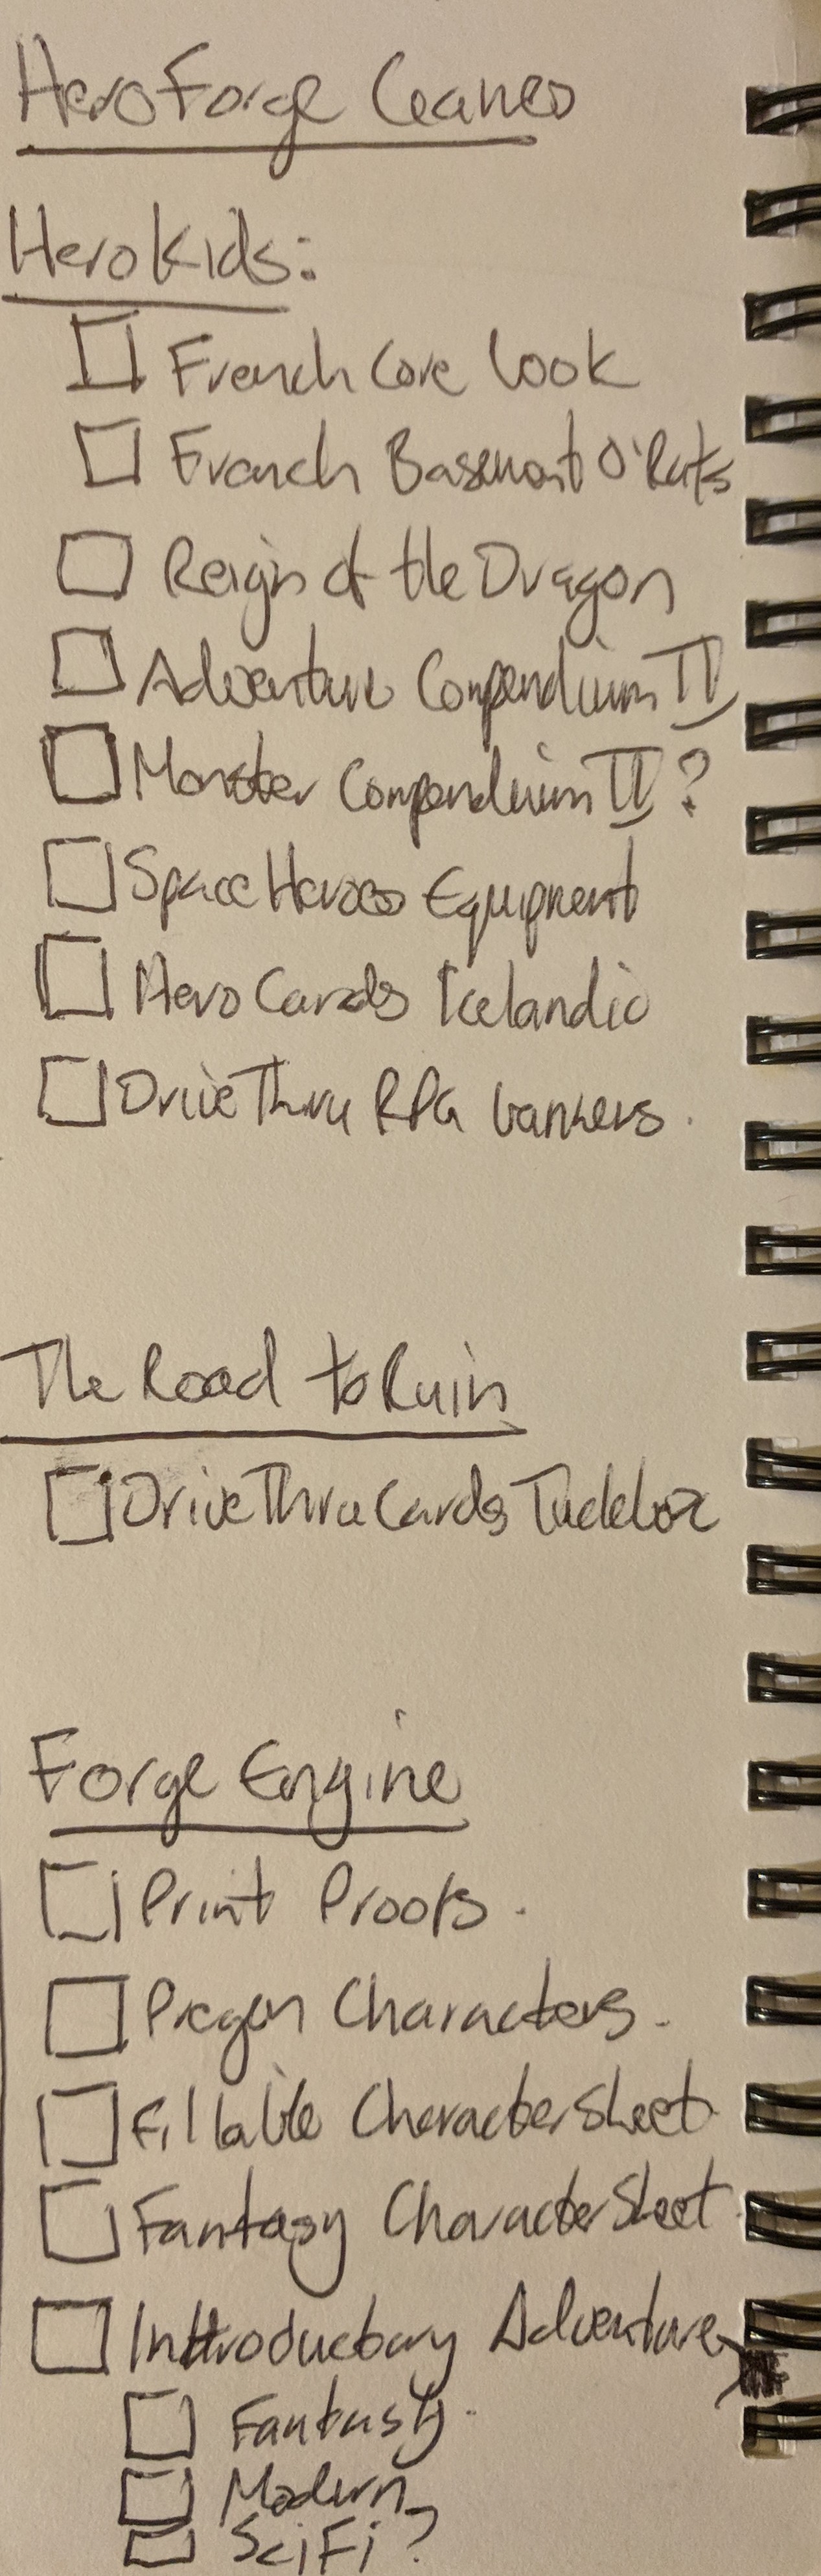 Hero Forge Games
Hero Kids:
French Core book
French Basement O'Rats
Reign of the Dragon
Adventure Compendium II
Monster Compendium II?
Space Heroes Equipment
Hero Cards Icelandic
DriveThru RPG banners.
The Road to Ruin
DriveThru Cards Tuckbox
Forge Engine
Print Proofs.
Pregen Characters.
Fillable Character Sheet
Fantasy Character Sheet
Introductory Adventure
Fantasy.
Modern
SciFi?